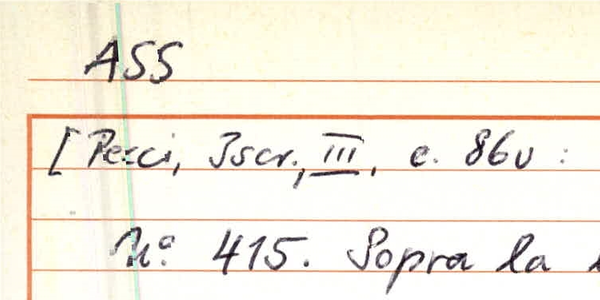 ASS
[Pecci, Iscr., III, c. 86v :
N.º 415. Sopra la